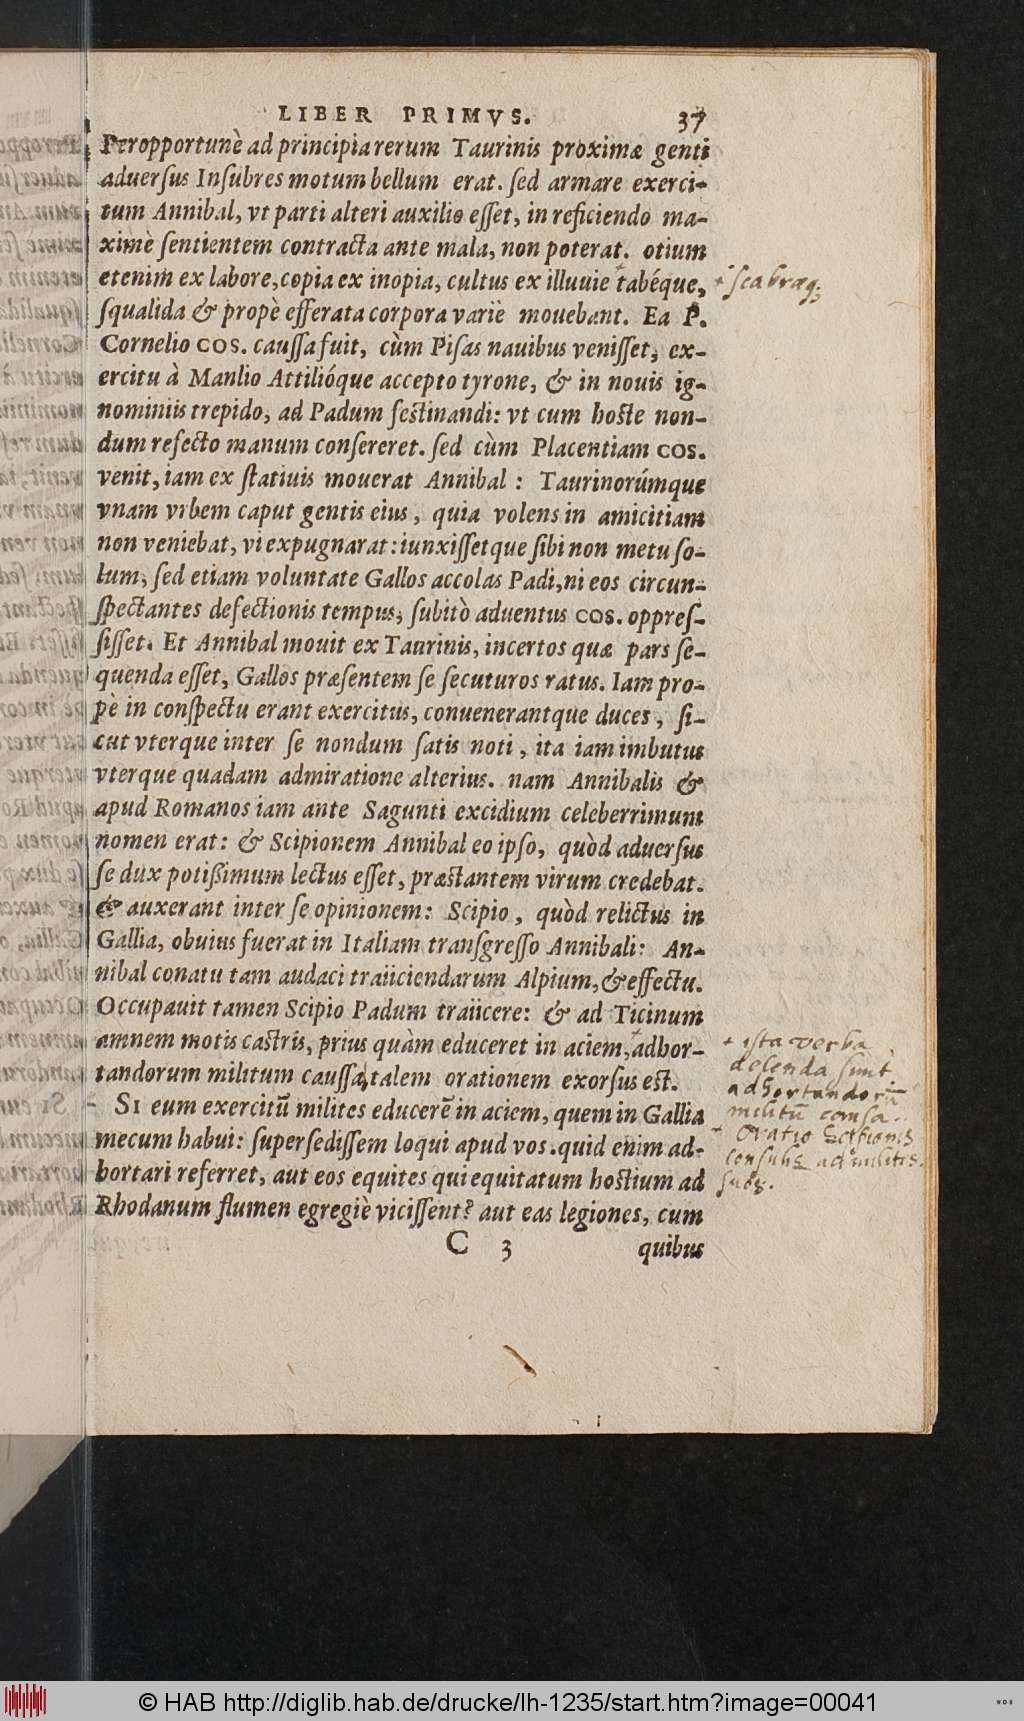 LIBER PRIMVS. 37
Peropportunè ad principia rerum Taurinis proximæ genti
aduersus Insubres motum bellum erat. sed armare exerci-
tum Annibal, vt parti alteri auxilio esset, in reficiendo ma-
ximè sentientem contracta ante mala, non poterat. otium
etenim ex labore, copia ex inopia, cultus ex illuuie tabéque,
+ scabraq;
squalida & propè efferata corpora variè mouebant. Ea P.
Cornelio COS. caussa fuit, cùm Pisas nauibus venisset, ex-
ercitu à Manlio Attilióque accepto tyrone, & in nouis ig-
nominiis trepido, ad Padum festinandi: vt cum hoste non-
dum refecto manum consereret. sed cùm Placentiam COS.
venit, iam ex statiuis mouerat Annibal: Taurinorúmque
vnam vrbem caput gentis eius, quia volens in amicitiam
non veniebat, vi expugnarat: iunxissetque sibi non metu so-
lum, sed etiam voluntate Gallos accolas Padi, ni eos circun-
spectantes defectionis tempus, subitò aduentus COS. oppres-
sisset. Et Annibal mouit ex Taurinis, incertos quæ pars se-
quenda esset, Gallos præsentem se secuturos ratus. Iam pro-
pè in conspectu erant exercitus, conuenerantque duces, si-
cut vterque inter se nondum satis noti, ita iam imbutus
vterque quadam admiratione alterius. nam Annibalis &
apud Romanos iam ante Sagunti excidium celeberrimum
nomen erat: & Scipionem Annibal eo ipso, quòd aduersus
se dux potißimum lectus esset, præstantem virum credebat.
& auxerant inter se opinionem: Scipio, quòd relictus in
Gallia, obuius fuerat in Italiam transgresso Annibali: An-
nibal conatu tam audaci traiiciendarum Alpium, & effectu.
Occupauit tamen Scipio Padum traiicere: & ad Ticinum
amnem motis castris, prius quàm educeret in aciem, adhor-
tandorum militum caussa, talem orationem exorsus est.
+ ista verba
delenda sunt
adhortandorū
militū causa.
SI eum exercitū milites educerē in aciem, quem in Gallia
mecum habui: supersedissem loqui apud vos. quid enim ad-
hortari referret, aut eos equites qui equitatum hostium ad
Rhodanum flumen egregiè vicissent? aut eas legiones, cum
Oratio Scipionis
consulis ad milites
suos.
C 3 quibus
© HAB http://diglib.hab.de/drucke/lh-1235/start.htm?image=00041